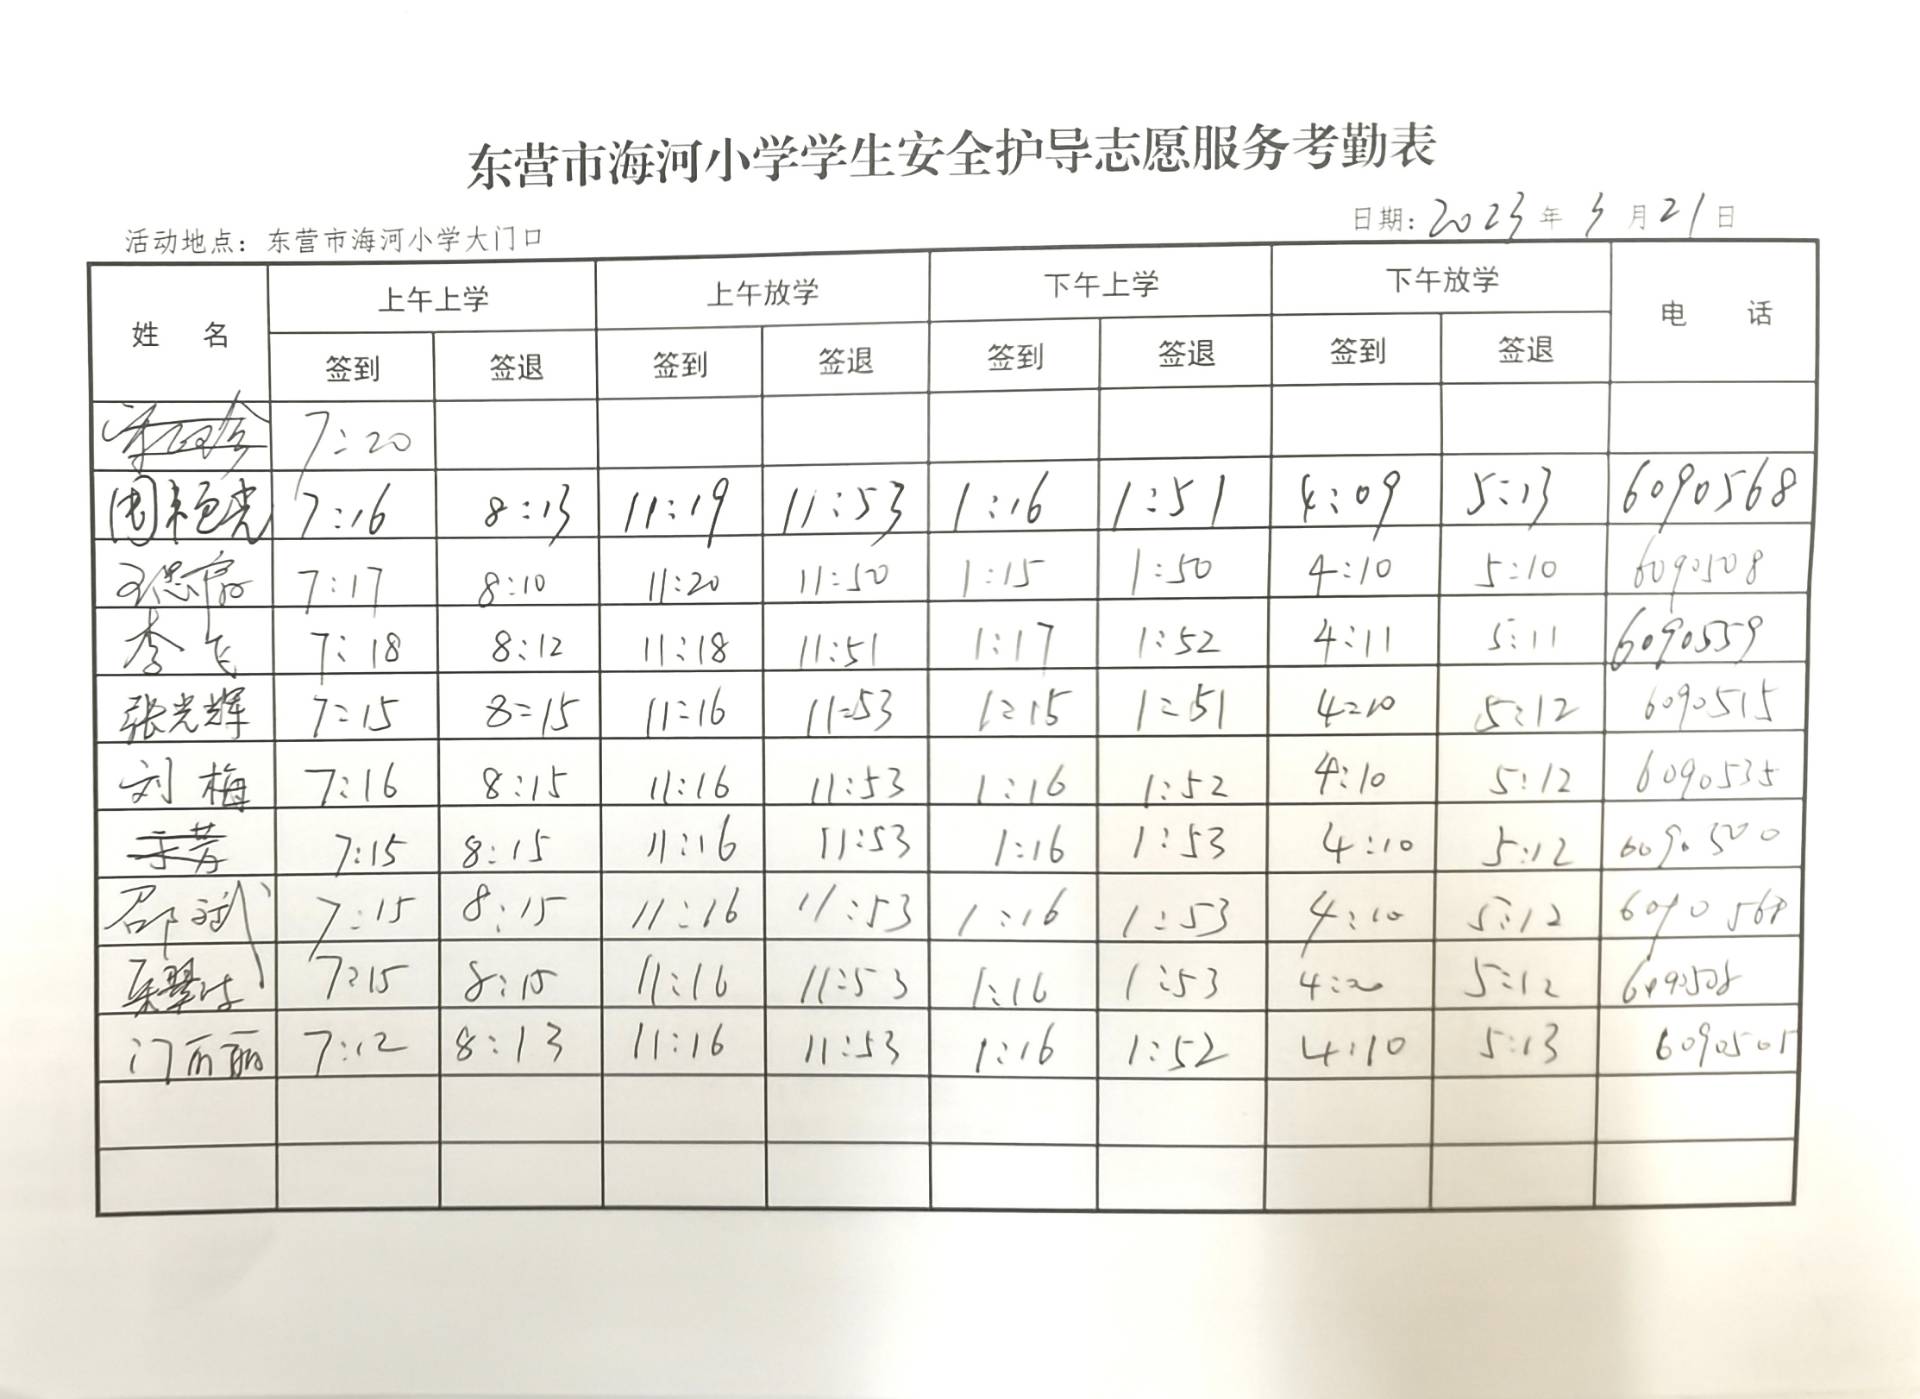 东营市海河小学学生安全护导志愿服务考勤表
活动地点：东营市海河小学大门口 日期：2023年3月21日
姓名 上午上学 上午放学 下午上学 下午放学 电话
签到 签退 签到 签退 签到 签退 签到 签退
7:20
7:16 8:13 11:19 11:53 1:16 1:51 4:09 5:13 6090568
7:17 8:10 11:20 11:50 1:15 1:50 4:10 5:10 6090508
李飞 7:18 8:12 11:18 11:51 1:17 1:52 4:11 5:11 6090559
张光辉 7:15 8:15 11:16 11:53 1:15 1:51 4:10 5:12 6090515
刘梅 7:16 8:15 11:16 11:53 1:16 1:52 4:10 5:12 6090535
7:15 8:15 11:16 11:53 1:16 1:53 4:10 5:12 6090500
邵斌 7:15 8:15 11:16 11:53 1:16 1:53 4:10 5:12 6090568
7:15 8:15 11:16 11:53 1:16 1:53 4:20 5:12 6090508
门丽丽 7:12 8:13 11:16 11:53 1:16 1:52 4:10 5:13 6090505